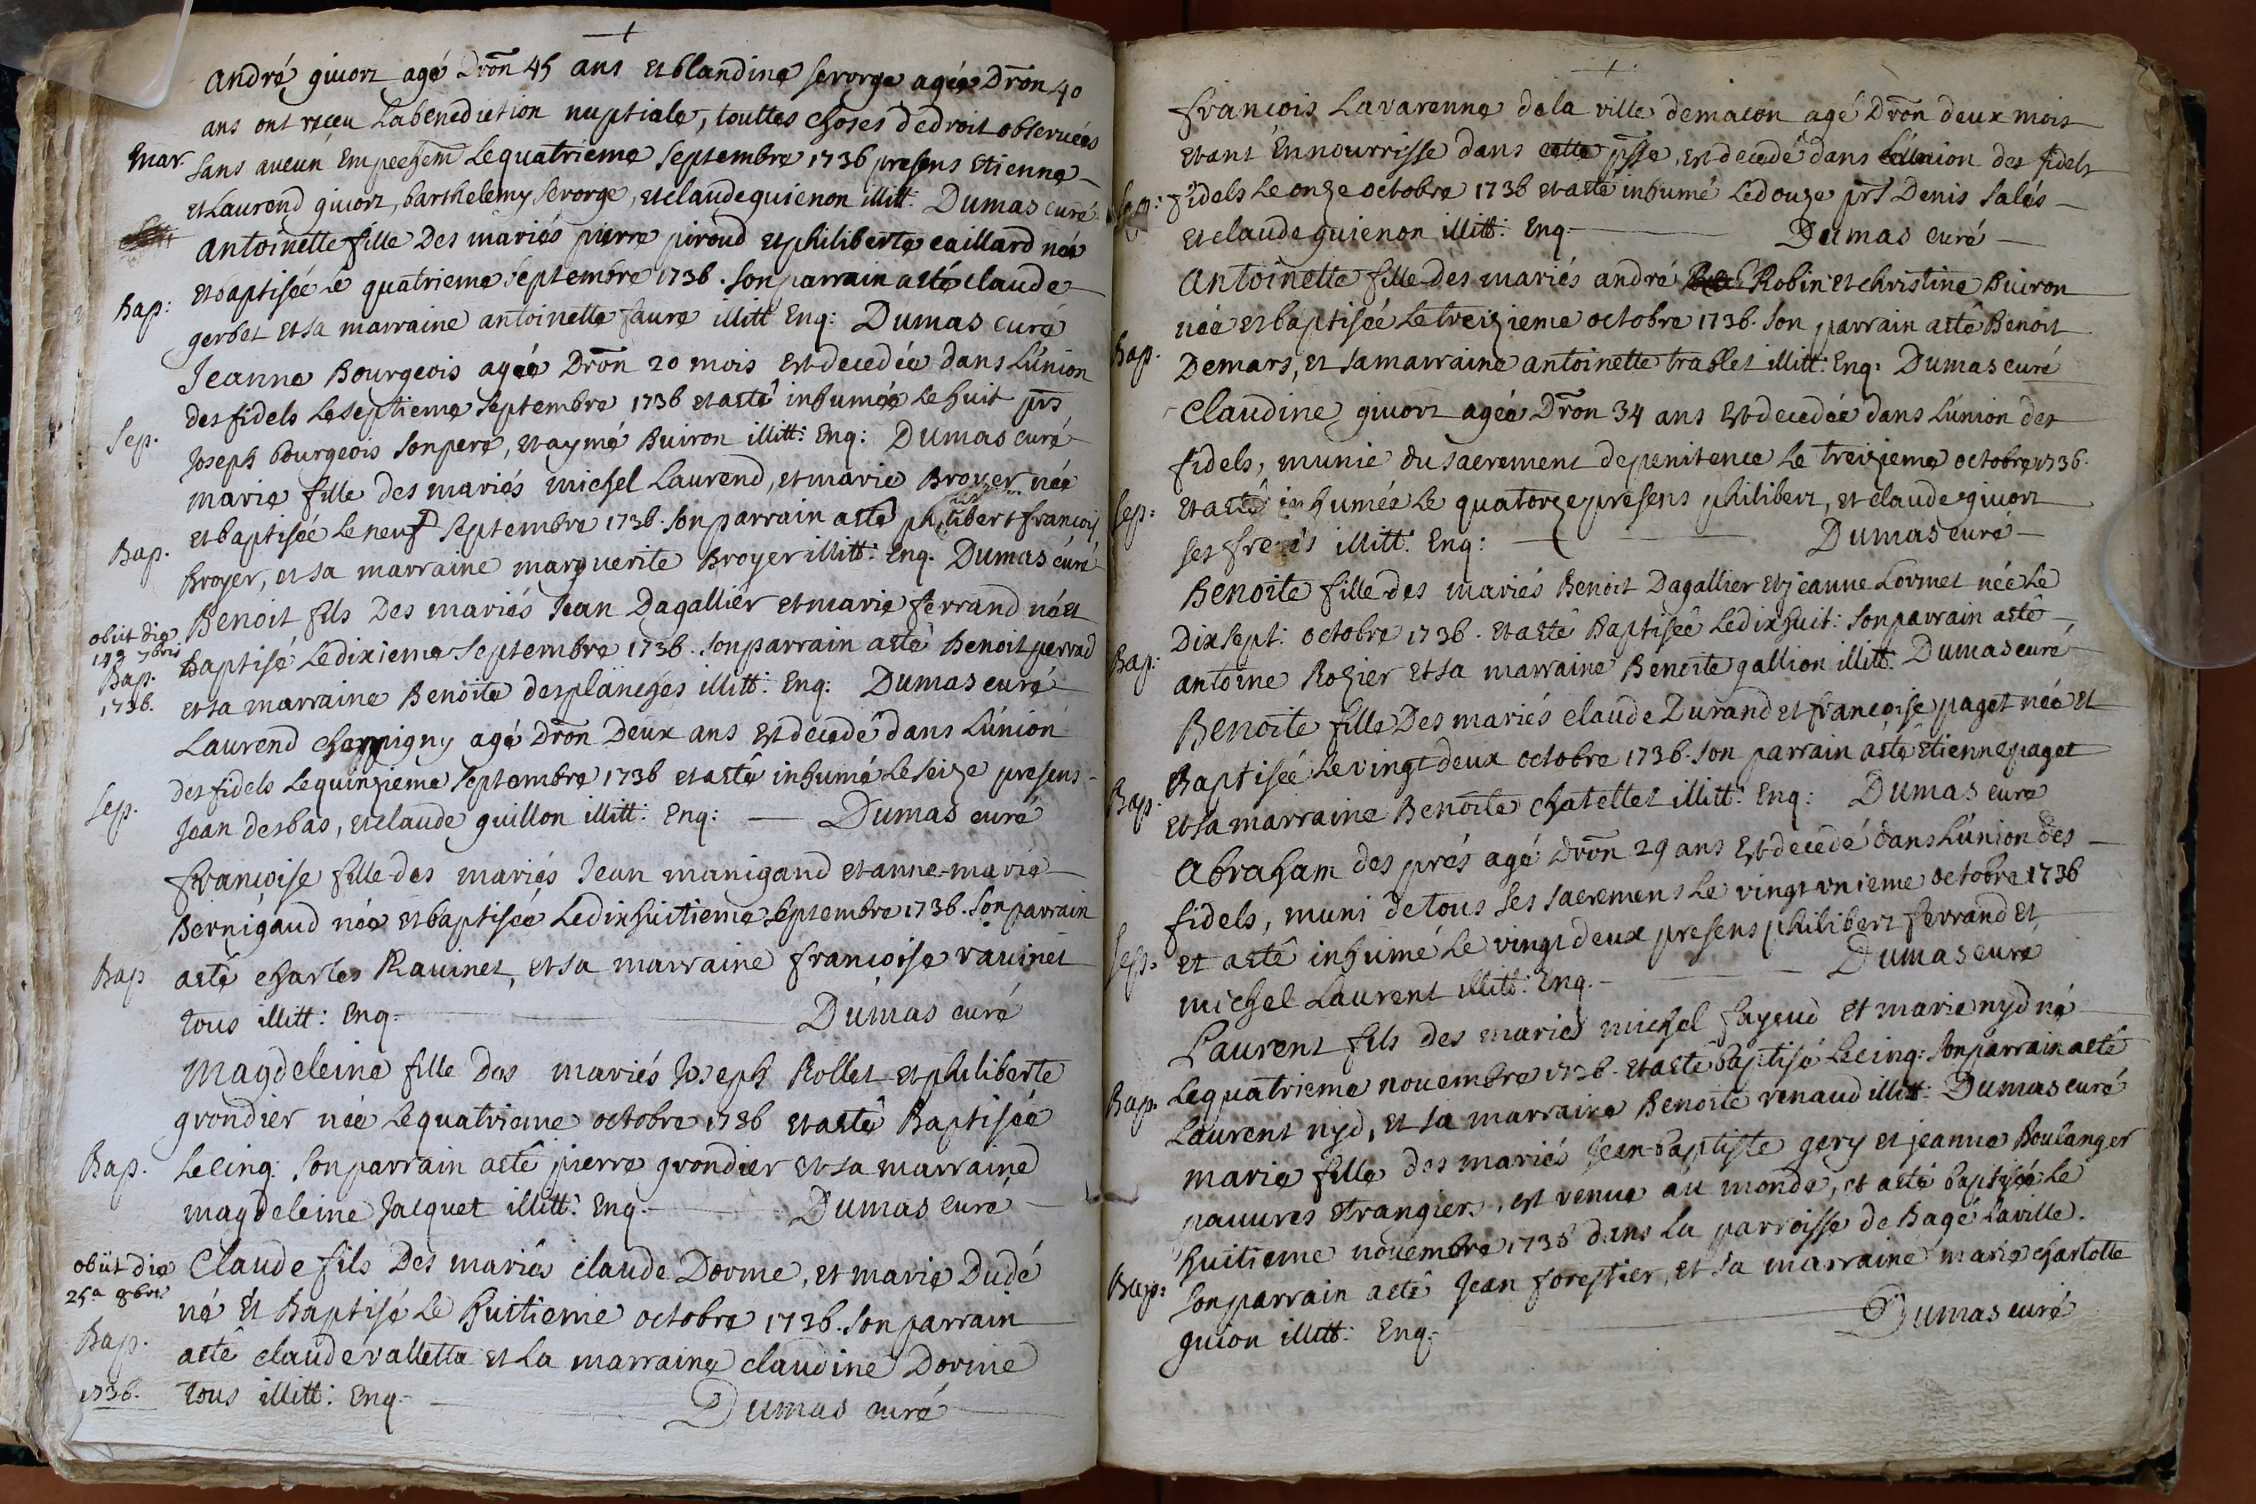 André givort agé Dron 45 ans et blandine servorge agée Dron 40
ans ont receu La benediction nuptiale, touttes choses de droit observées
Mar. sans aucun Empechem Le quatrieme septembre 1736 presens Etienne
et Laurend givort, barthelemy servorge, et claude guienon illitt: Dumas curé
Antoinette fille Des mariés pierre piroud et philiberte caillard née
Bap: et baptisée Le quatrieme septembre 1736. son parrain a esté claude
gerbet et sa marraine antoinette faure illitt Enq: Dumas curé
Jeanne Bourgeois agée Dron 20 mois est decedée dans L'union
Sep. des fidels Le septieme septembre 1736 et a esté inhumée Le huit prs
Joseph bourgeois son pere, et aymé Buiron illitt: Enq: Dumas curé
marie fille des mariés michel Laurend, et marie Broyer née
Bap. et baptisée Le neuf septembre 1736. son parrain a esté philibert françois
broyer, et sa marraine marguerite Broyer illitt: Enq. Dumas curé
Benoit fils Des mariés Jean Dagallier et marie ferrand né et
obiit die 7bris Bap. 1736. baptisé Le dixieme septembre 1736. son parrain a esté Benoit
et sa marraine Benoite desplanches illitt: Enq: Dumas curé
Laurend agé Dron Deux ans est decedé dans L'union
Sep. des fidels Le quinzieme septembre 1736 et a esté inhumé Le seize presens
Jean desbas, et claude guillon illitt: Enq: Dumas curé
françoise fille des mariés Jean manigand et anne-marie
Bernigaud née et baptisée Le dixhuitieme septembre 1736. son parrain
Bap a esté charles Ravinet, et sa marraine francoise ravinet
tous illitt: Enq. Dumas curé
Magdeleine fille des mariés Joseph Rollet et philiberte
grondier née Le quatrieme octobre 1736 et a esté Baptisée
Bap. Le cinq: son parrain a esté pierre grondier et sa marraine
magdeleine Jacquet illitt: Enq. Dumas curé
obiit die 25a 8bris Claude fils Des mariés claude Dorme, et marie Dudé
né et Baptisé Le huitieme octobre 1736. son parrain
Bap. a esté claude valletta et La marraine claudine Dorme
1736. tous illitt: Enq. Dumas curé
françois Lavarenne de la ville de macon agé Dron deux mois
etant en nourrisse dans cette psse, est decedé dans L'union des fidels
Sep: fidels Le onze octobre 1736 et a esté inhumé Le douze prs Denis Salés
et claude guienon illitt: Enq. Dumas curé
Antoinette fille des mariés andré Robin et christine Buiron
née et baptisée Le treizieme octobre 1736. son parrain a esté Benoit
Bap. Demars, et sa marraine antoinette trablet illitt: Enq: Dumas curé
Claudine givort agée Dron 34 ans est decedée dans L'union des
fidels, munie du sacrement de penitence Le treizieme octobre 1736.
Sep: et a esté inhumée Le quatorze presens philibert, et claude givort
ses freres illitt: Enq: Dumas curé
Benoite fille des mariés Benoit Dagallier et jeanne Lormet née Le
Dix sept: octobre 1736. et a esté Baptisée Le dixhuit: son parrain a esté
Bap: antoine Rozier et sa marraine Benoite gallion illitt. Dumas curé
Benoite fille Des mariés claude Durand et francoise paget née et
Baptisée Le vingt deux octobre 1736. son parrain a esté Etienne paget
Bap. et sa marraine Benoite chatellet illitt: Enq: Dumas curé
Abraham des prés agé Dron 29 ans est decedé dans L'union des
fidels, muni de tous ses sacremens Le vingt unieme octobre 1736
Sep. et a esté inhumé Le vingt deux presens philibert ferrand et
michel Laurent illitt: Enq. Dumas curé
Laurent fils des mariés michel fayoud et marie nyd né
Bap. Le quatrieme novembre 1736. et a esté baptisé Le cinq: son parrain a esté
Laurent nyd, et sa marraine Benoite renaud illitt: Dumas curé
marie fille des mariés Jean-baptiste gery et jeanne Boulanger
pauvres etrangers, est venue au monde, et a esté baptisée Le
huitieme novembre 1736 dans La parroisse de Bagé La ville.
Bap: son parrain a esté Jean forestier, et sa marraine marie charlotte
guion illitt: Enq. Dumas curé